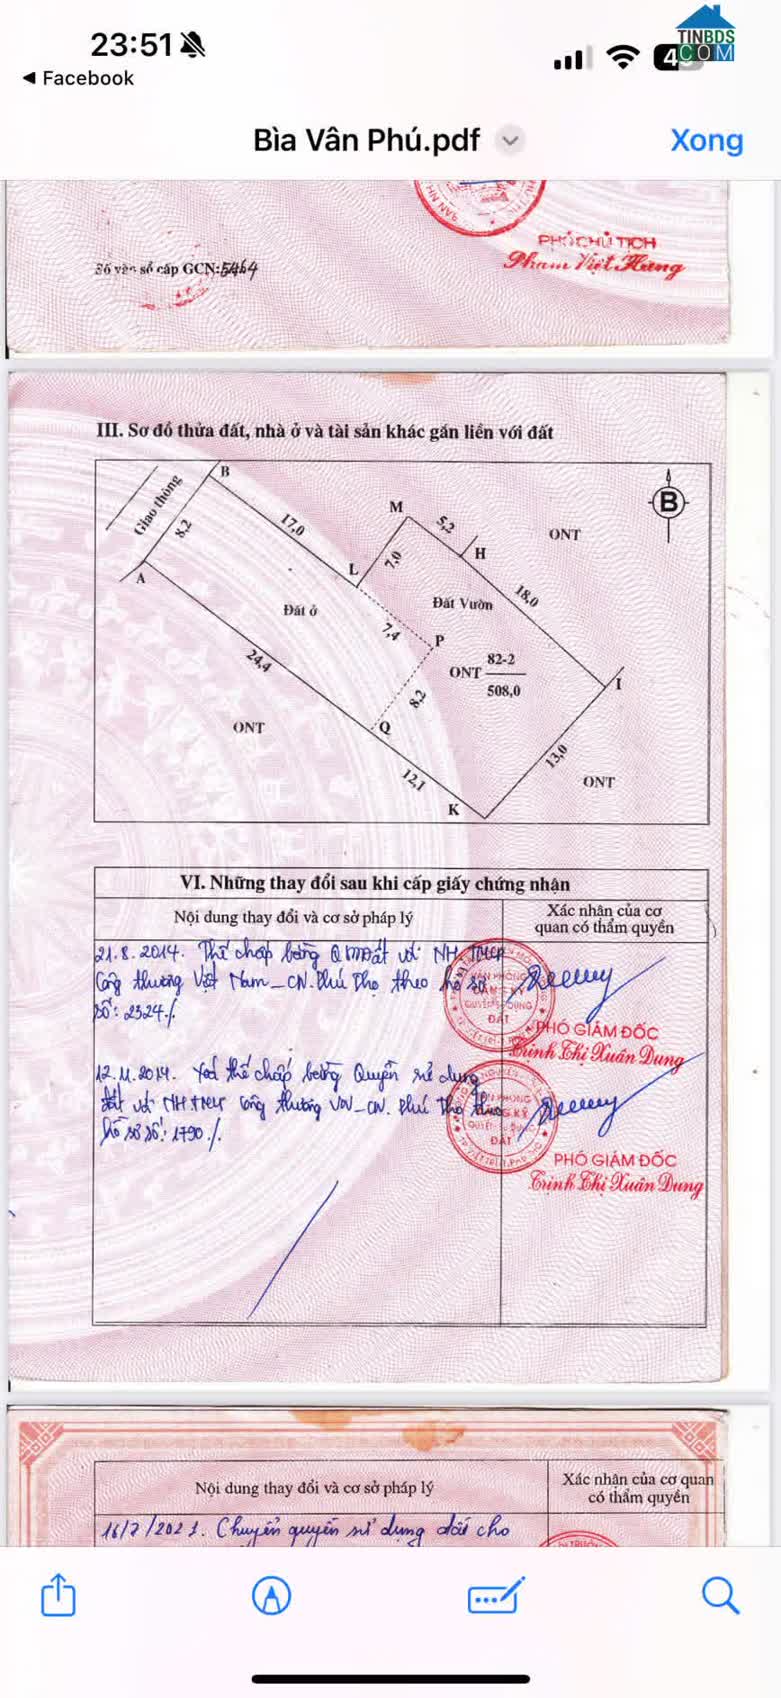 23:51
TINBDS
COM
Facebook
Bìa Vân Phú.pdf
Xong
PHÓ CHỦ TỊCH
Phạm Việt Hùng
Số vào sổ cấp GCN: 5464
III. Sơ đồ thửa đất, nhà ở và tài sản khác gắn liền với đất
Giao thông
B
8,2
A
17,0
M
5,2
H
ONT
B
L
7,0
18,0
Đất ở
7,4
Đất Vườn
P
24,4
ONT 82-2
508,0
I
8,2
Q
ONT
13,0
ONT
12,1
K
VI. Những thay đổi sau khi cấp giấy chứng nhận
Nội dung thay đổi và cơ sở pháp lý
Xác nhận của cơ
quan có thẩm quyền
21.8.2014. Thế chấp bằng QSDĐất với NH TMCP
Công thương Việt Nam_CN.Phú Thọ theo hồ sơ
số: 2324./.
PHÓ GIÁM ĐỐC
Trịnh Thị Xuân Dung
12.11.2014. Xoá thế chấp bằng Quyền sử dụng
đất với NH TMCP Công thương VN_CN. Phú Thọ theo
hồ sơ số: 1790./.
PHÓ GIÁM ĐỐC
Trịnh Thị Xuân Dung
Nội dung thay đổi và cơ sở pháp lý
Xác nhận của cơ quan
có thẩm quyền
16/7/2021. Chuyển quyền sử dụng đất cho